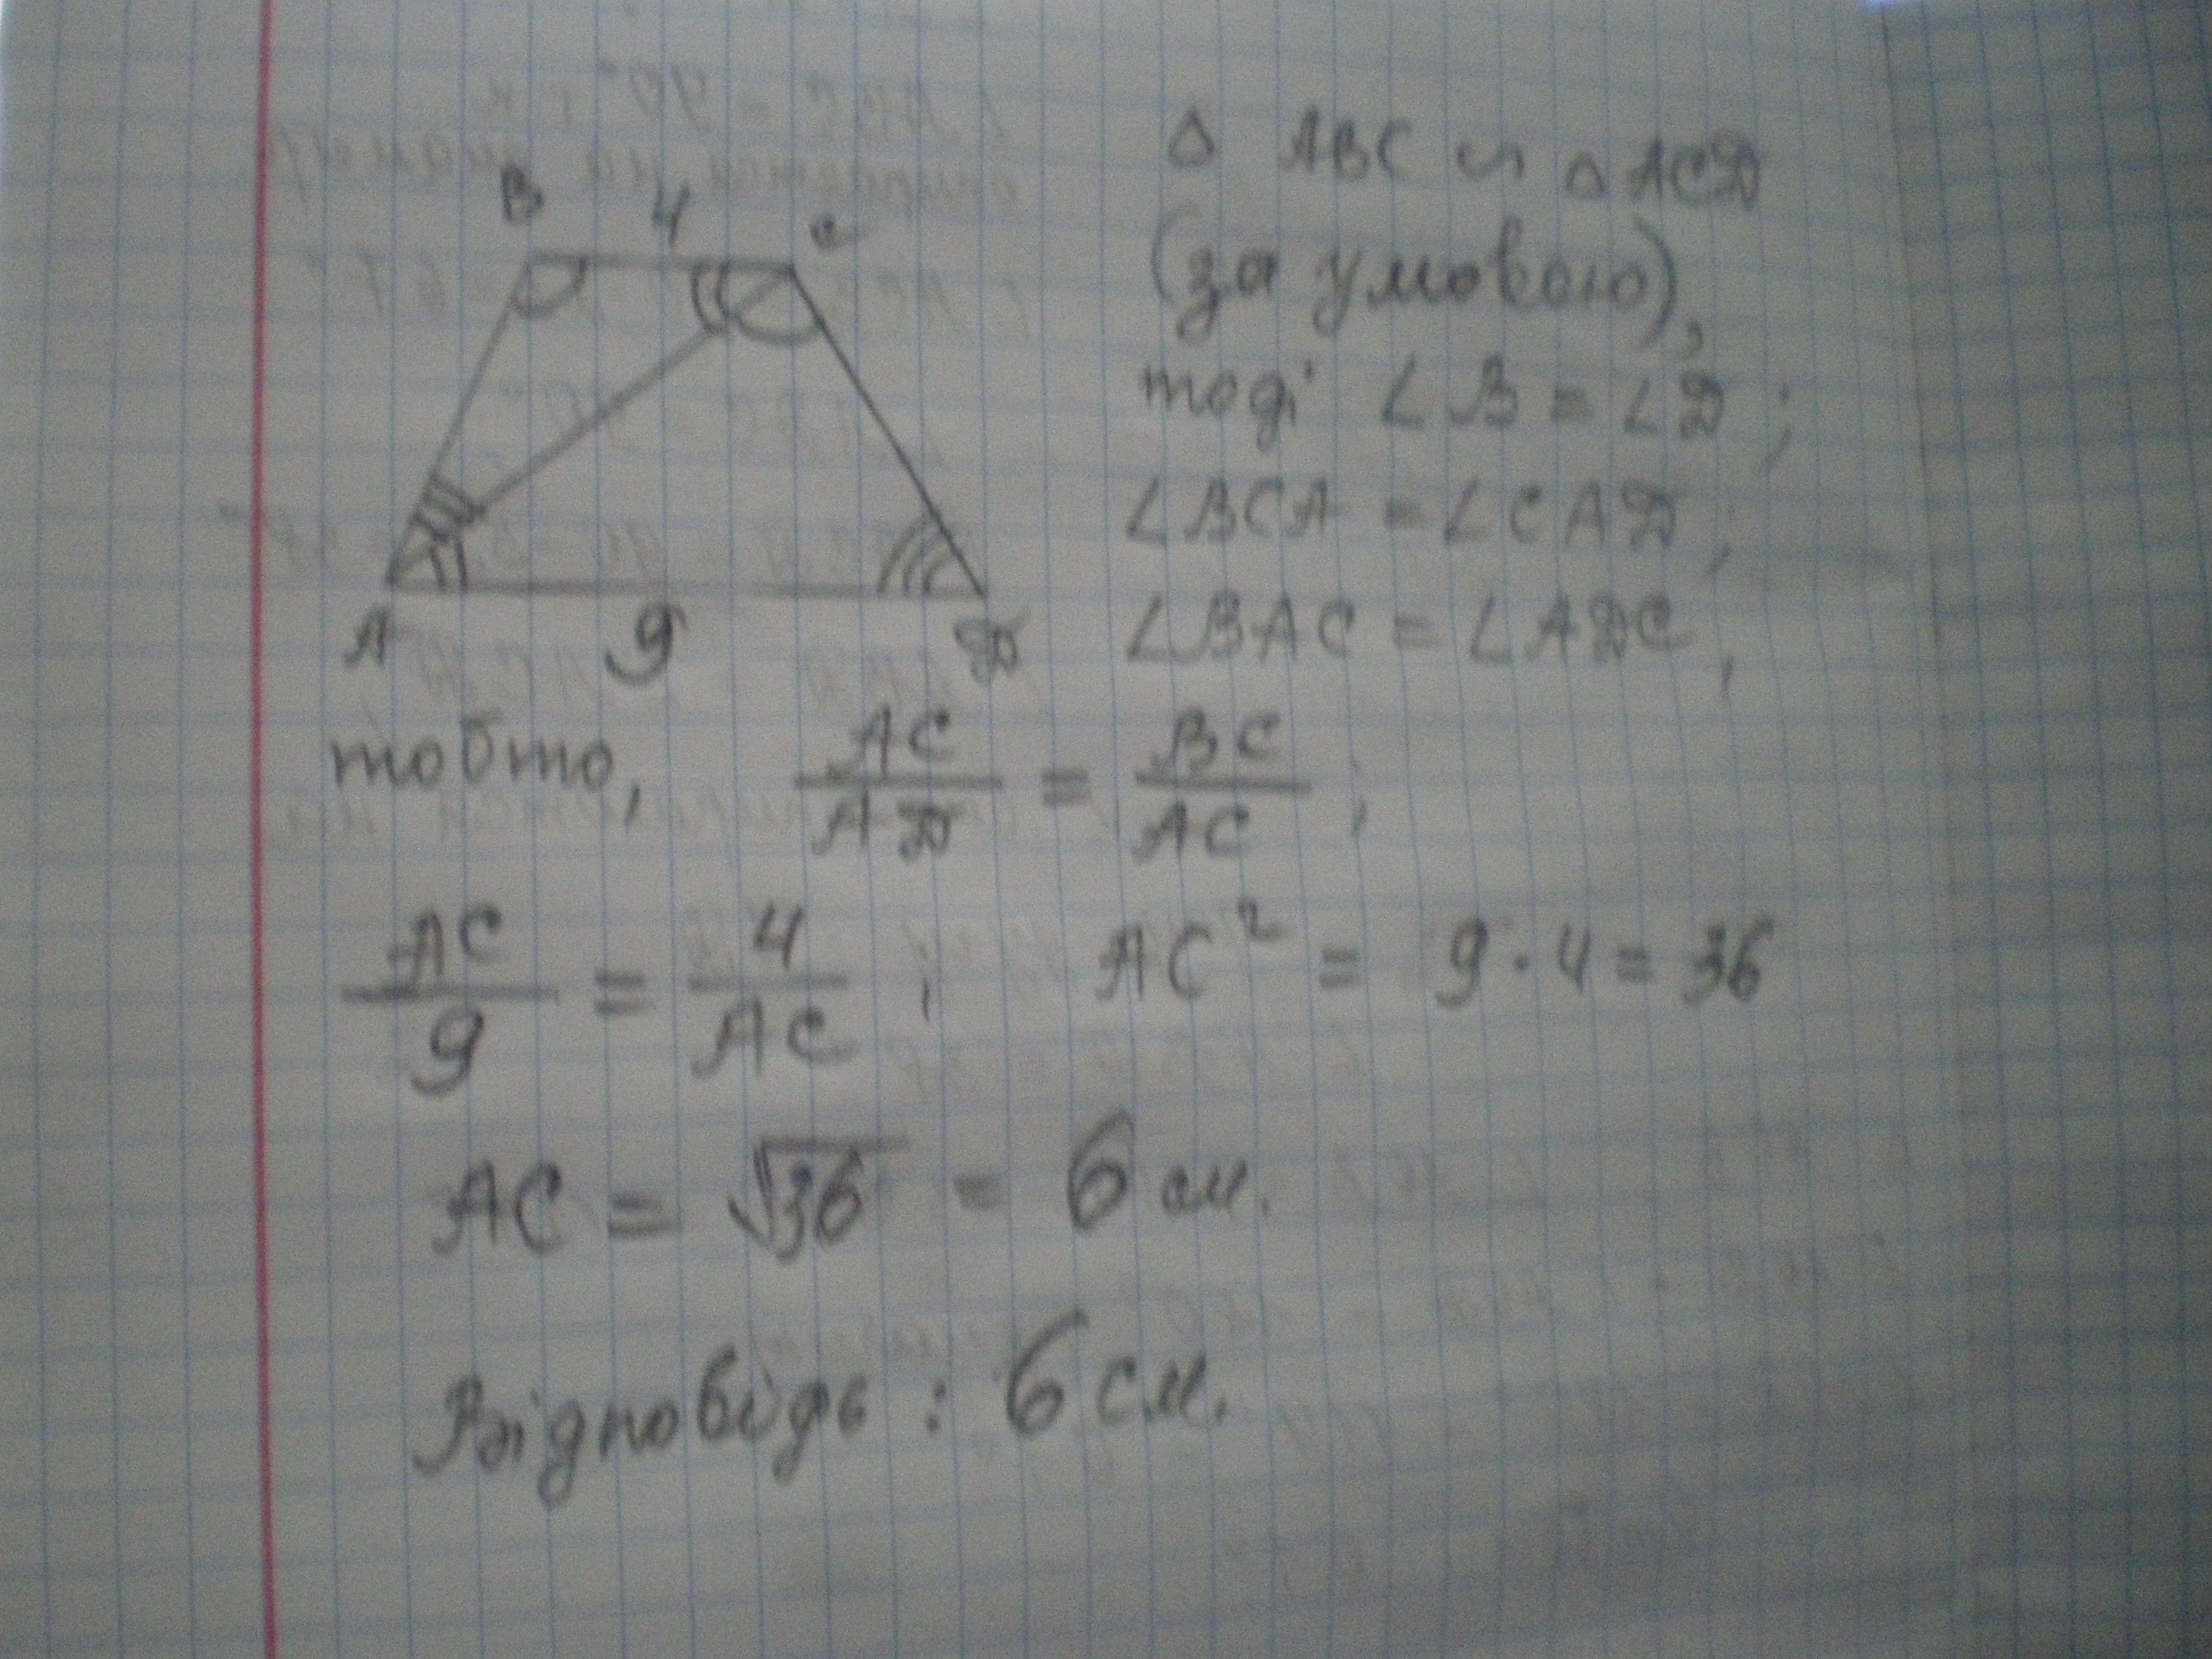 B 4 C
A 9 D
△ ABC ∽ △ ACD
(за умовою),
тоді ∠B = ∠D;
∠BCA = ∠CAD;
∠BAC = ∠ADC,
тобто, AC/AD = BC/AC;
AC/9 = 4/AC; AC² = 9·4 = 36
AC = √36 = 6 см.
Відповідь: 6 см.